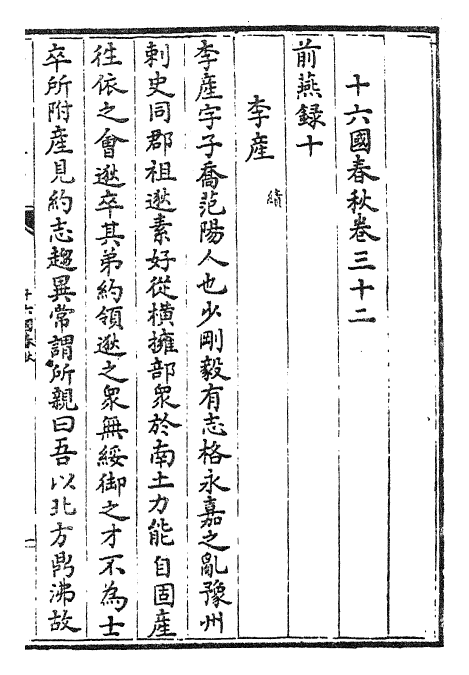 十六國春秋卷三十二
前燕録十
李産 績
李産字子喬范陽人也少剛毅有志格永嘉之亂豫州
刺史同郡祖逖素好從橫擁部衆於南土力能自固産
往依之會逖卒其弟約領逖之衆無綏御之才不為士
卒所附産見約志趨異常謂所親曰吾以北方鼎沸故
十六國春秋